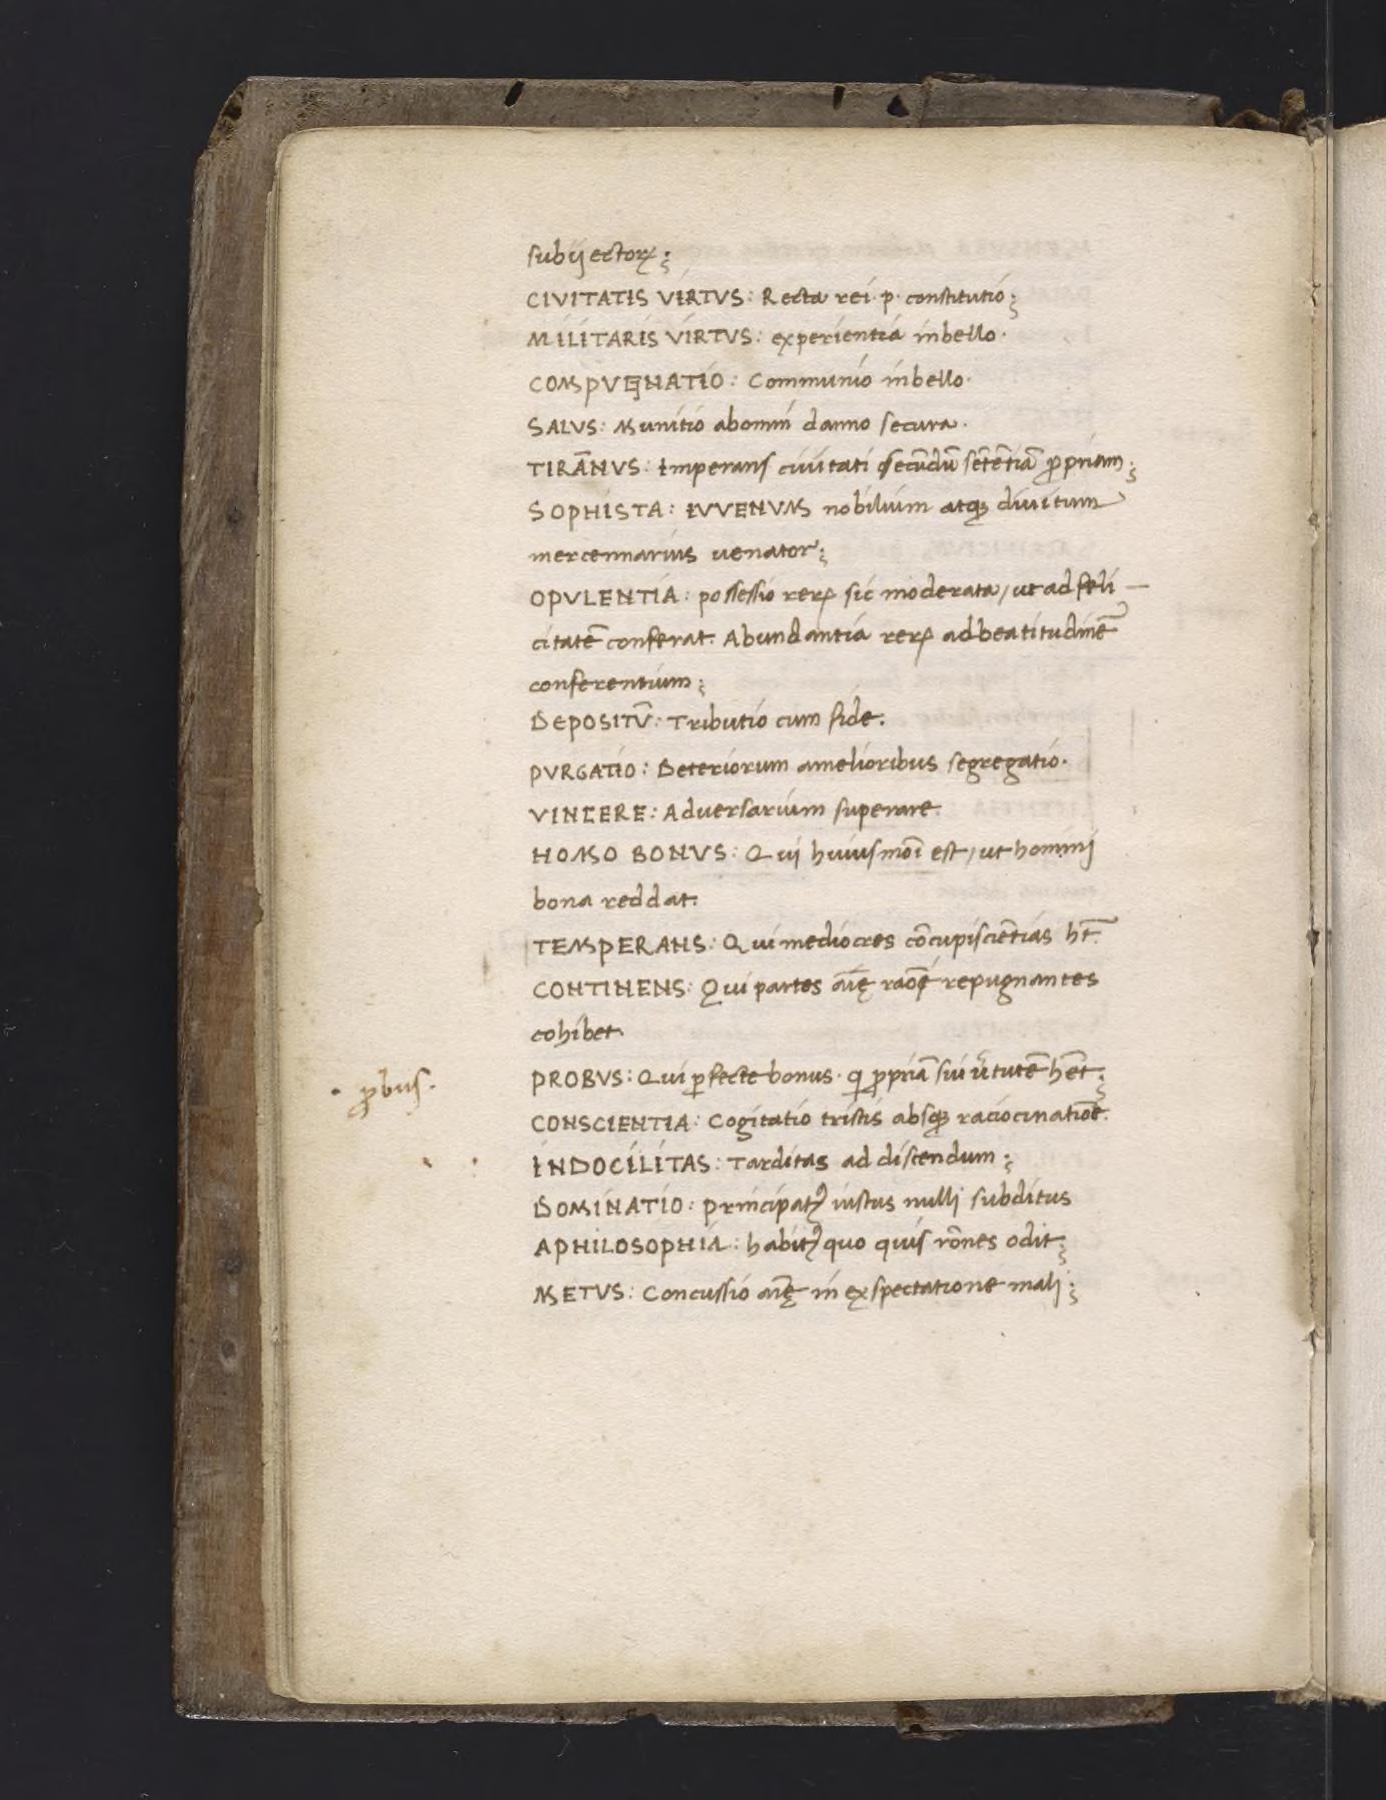 subijectoꝝ;
CIVITATIS VIRTVS: Recta rei·p· constitutio;
MILITARIS VIRTVS: experientia inbello·
COMPVGNATIO: Communio inbello·
SALVS: Munitio abomni danno secura·
TIRĀNVS: Imperans civitati secūdū sētētiā ꝓpriam;
SOPHISTA: IVVENVM nobilium atqꝫ divitum
mercennarius venator;
OPVLENTIA: possessio reꝝ sic moderata, ut ad feli—
citatē conferat. Abundantia reꝝ adbeatitudinē
conferentium;
DEPOSITV̄: Tributio cum fide.
PVRGATIO: Deteriorum amelioribus segregatio·
VINCERE: Adversarium superare.
HOMO BONVS: Qui huiusmōi est, ut hominj
bona reddat.
TEMPERANS: Qui mediocres cōcupiscētias hт̄.
CONTINENS: Qui partes aīę raōē repugnantes
cohibet.
PROBVS: Qui ꝑfecte bonus· qi ꝓpriā sui v̄tutē hēt;
·ꝓbus·
CONSCIENTIA: Cogitatio tristis absqꝫ raciocinatiōe.
INDOCILITAS: Tarditas ad discendum;
DOMINATIO: principatꝰ iustus nullj subditus
APHILOSOPHIA: habitꝰ quo quis rōnes odit;
METUS: Concussio aīę in exspectatione malj;